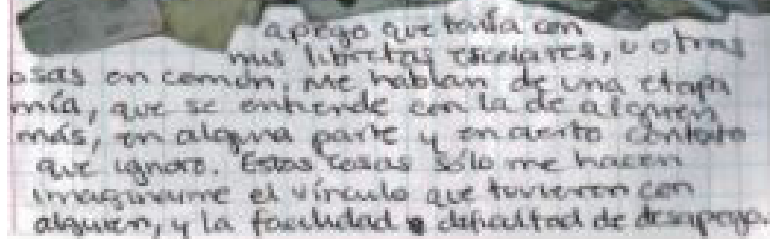 apego que tenía con
mis libretas escolares, u otras
osas en común, me hablan de una etapa
mía, que se entiende con la de alguien
más, en alguna parte y en cierto contexto
que ignoro. Estas cosas sólo me hacen
imaginarme el vínculo que tuvieron con
alguien, y la facilidad o dificultad de desapego.